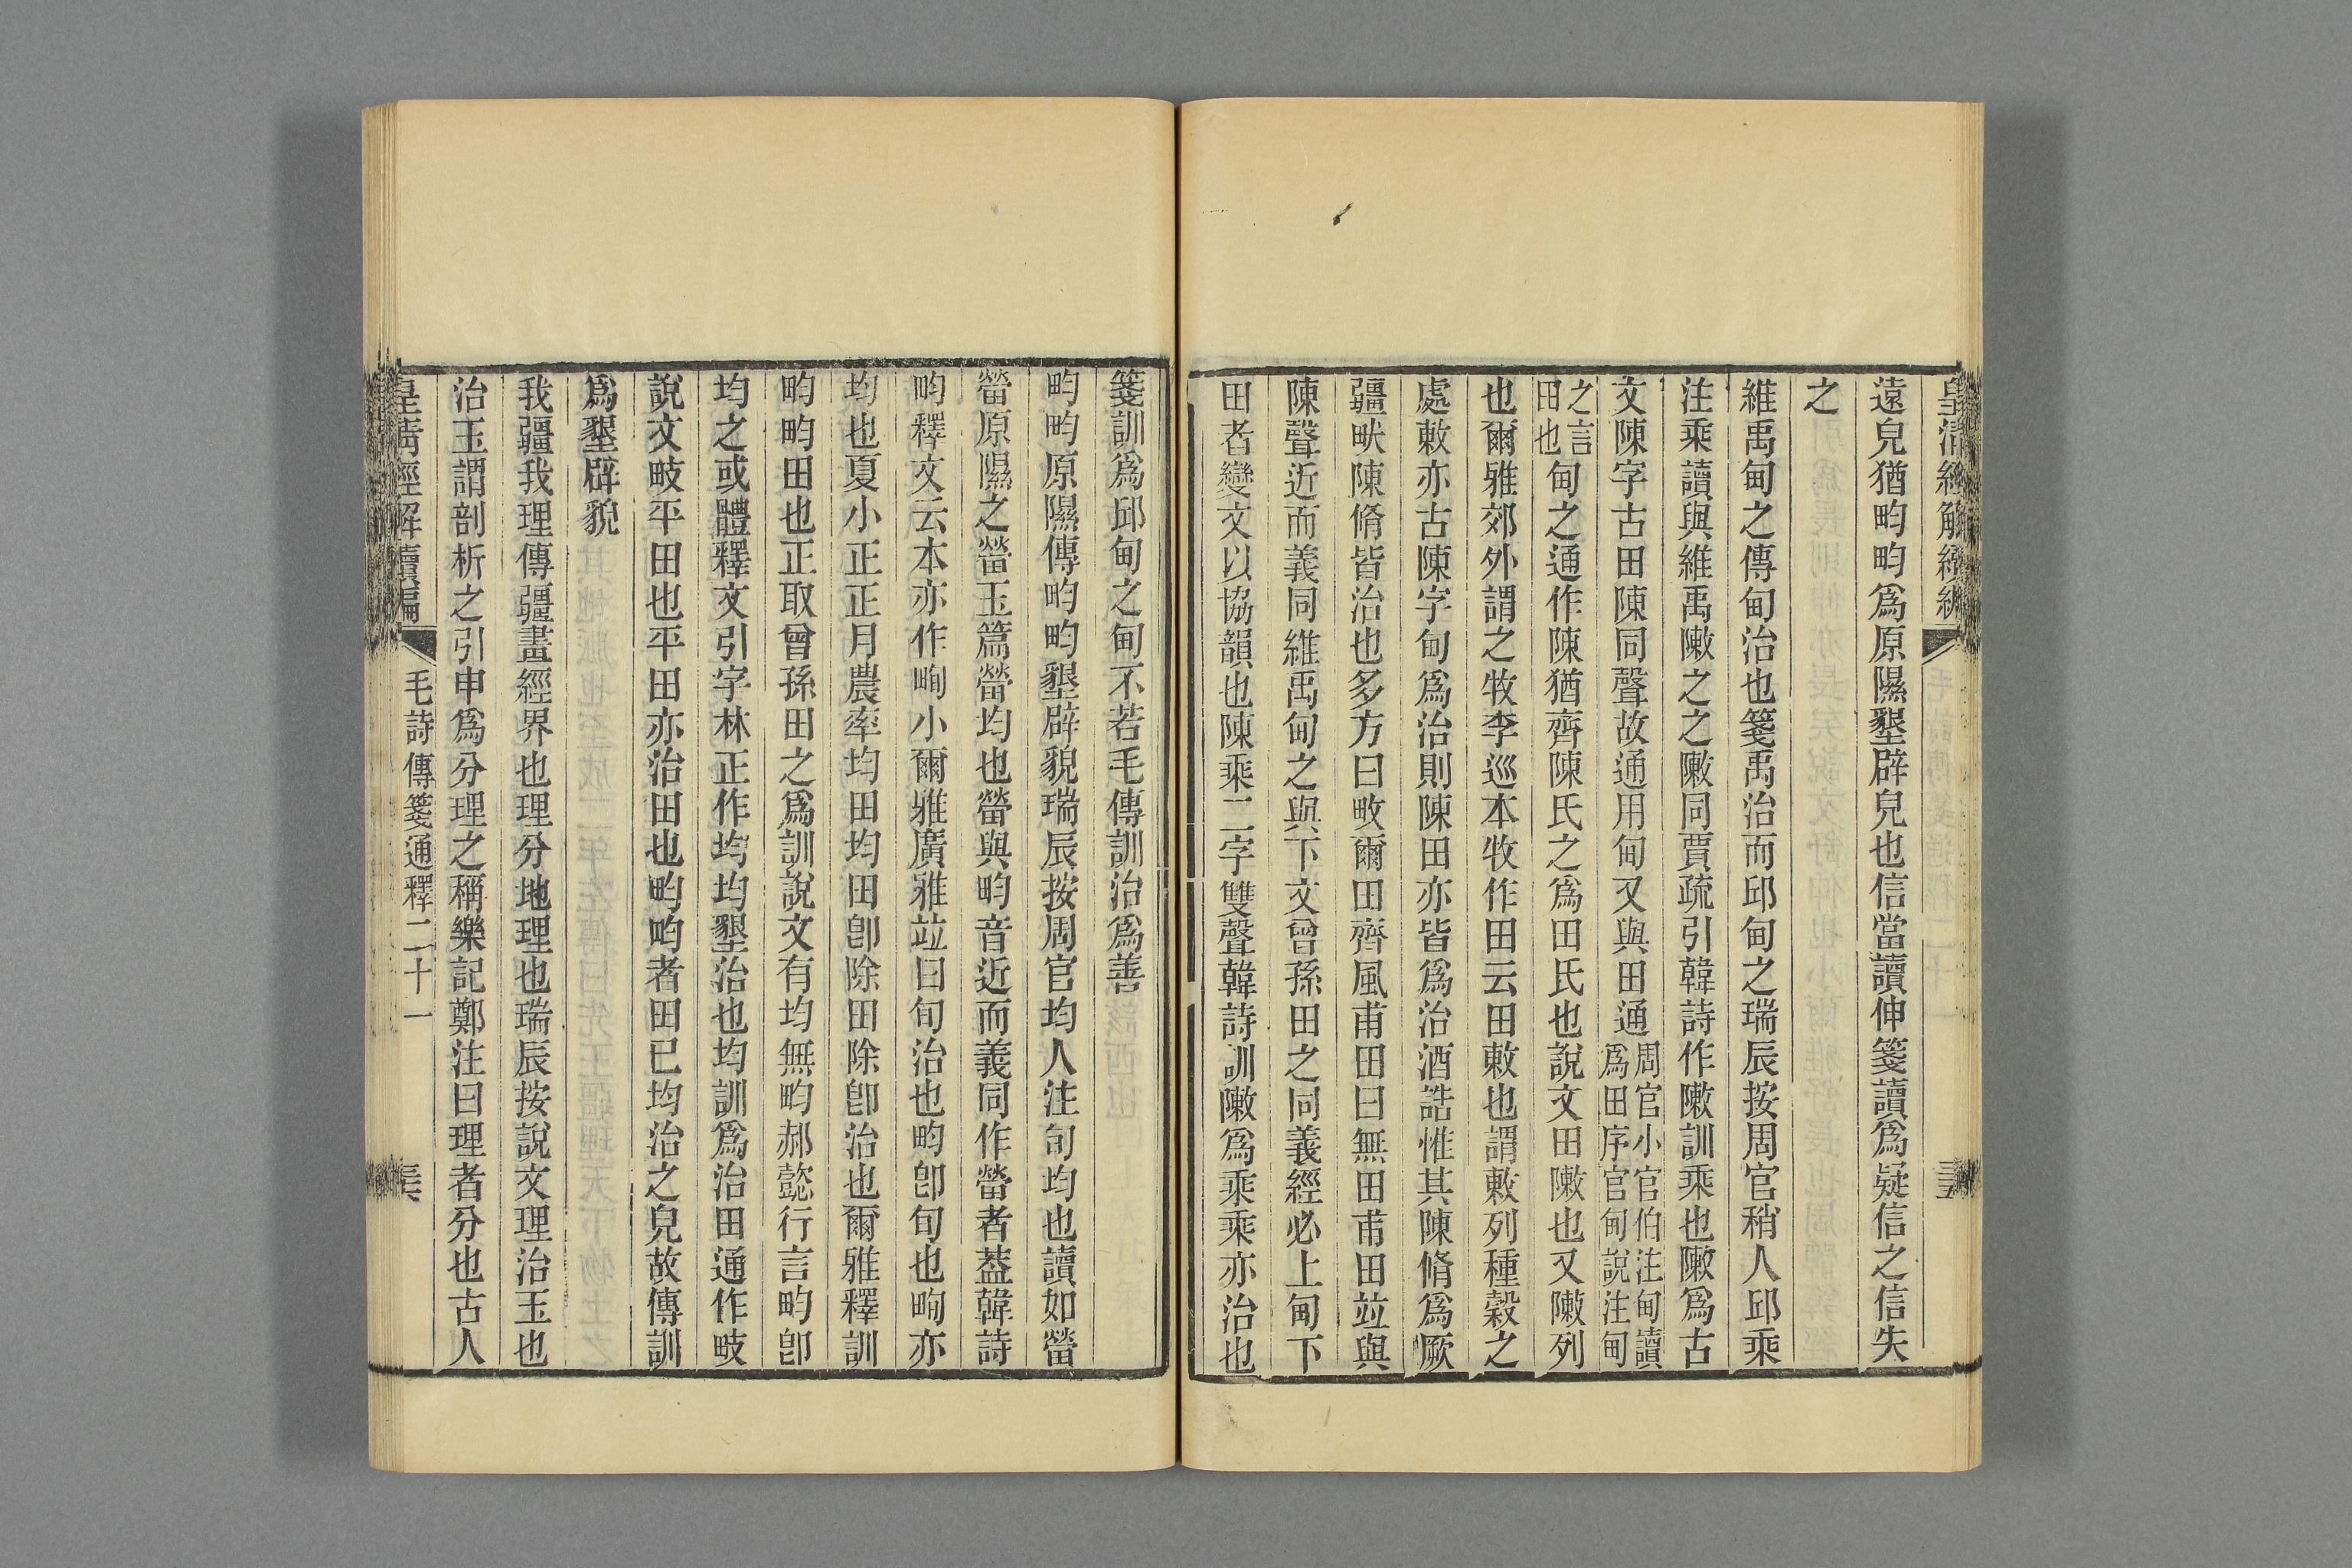 皇清經解續編
遠皃猶畇畇爲原隰墾辟皃也信當讀伸箋讀爲疑信之信失
之
維禹甸之傳甸治也箋禹治而邱甸之瑞辰按周官稍人邱乘
注乘讀與維禹敶之之敶同賈疏引韓詩作敶訓乘也敶爲古
文陳字古田陳同聲故通用甸又與田通周官小官伯注甸讀爲田序官甸說注甸
之言田也甸之通作陳猶齊陳氏之爲田氏也說文田敶也又敶列
也爾雅郊外謂之牧李巡本牧作田云田敶也謂敶列種穀之
處敶亦古陳字甸爲治則陳田亦皆爲治酒誥惟其陳脩爲厥
疆畎陳脩皆治也多方曰畋爾田齊風甫田曰無田甫田竝與
陳聲近而義同維禹甸之與下文曾孫田之同義經必上甸下
田者變文以協韻也陳乘二字雙聲韓詩訓敶爲乘乘亦治也
箋訓爲邱甸之甸不若毛傳訓治爲善
畇畇原隰傳畇畇墾辟貌瑞辰按周官均人注旬均也讀如螢
螢原隰之螢玉篇螢均也螢與畇音近而義同作螢者葢韓詩
畇釋文云本亦作畇小爾雅廣雅竝曰旬治也畇卽旬也畇亦
均也夏小正正月農率均田均田卽除田除卽治也爾雅釋訓
畇畇田也正取曾孫田之爲訓說文有均無畇郝懿行言畇卽
均之或體釋文引字林正作均均墾治也均訓爲治田通作㽘
說文㽘平田也平田亦治田也畇畇者田已均治之皃故傳訓
爲墾辟貌
我疆我理傳疆畫經界也理分地理也瑞辰按說文理治玉也
治玉謂剖析之引申爲分理之稱樂記鄭注曰理者分也古人
皇清經解續編
毛詩傳箋通釋二十一